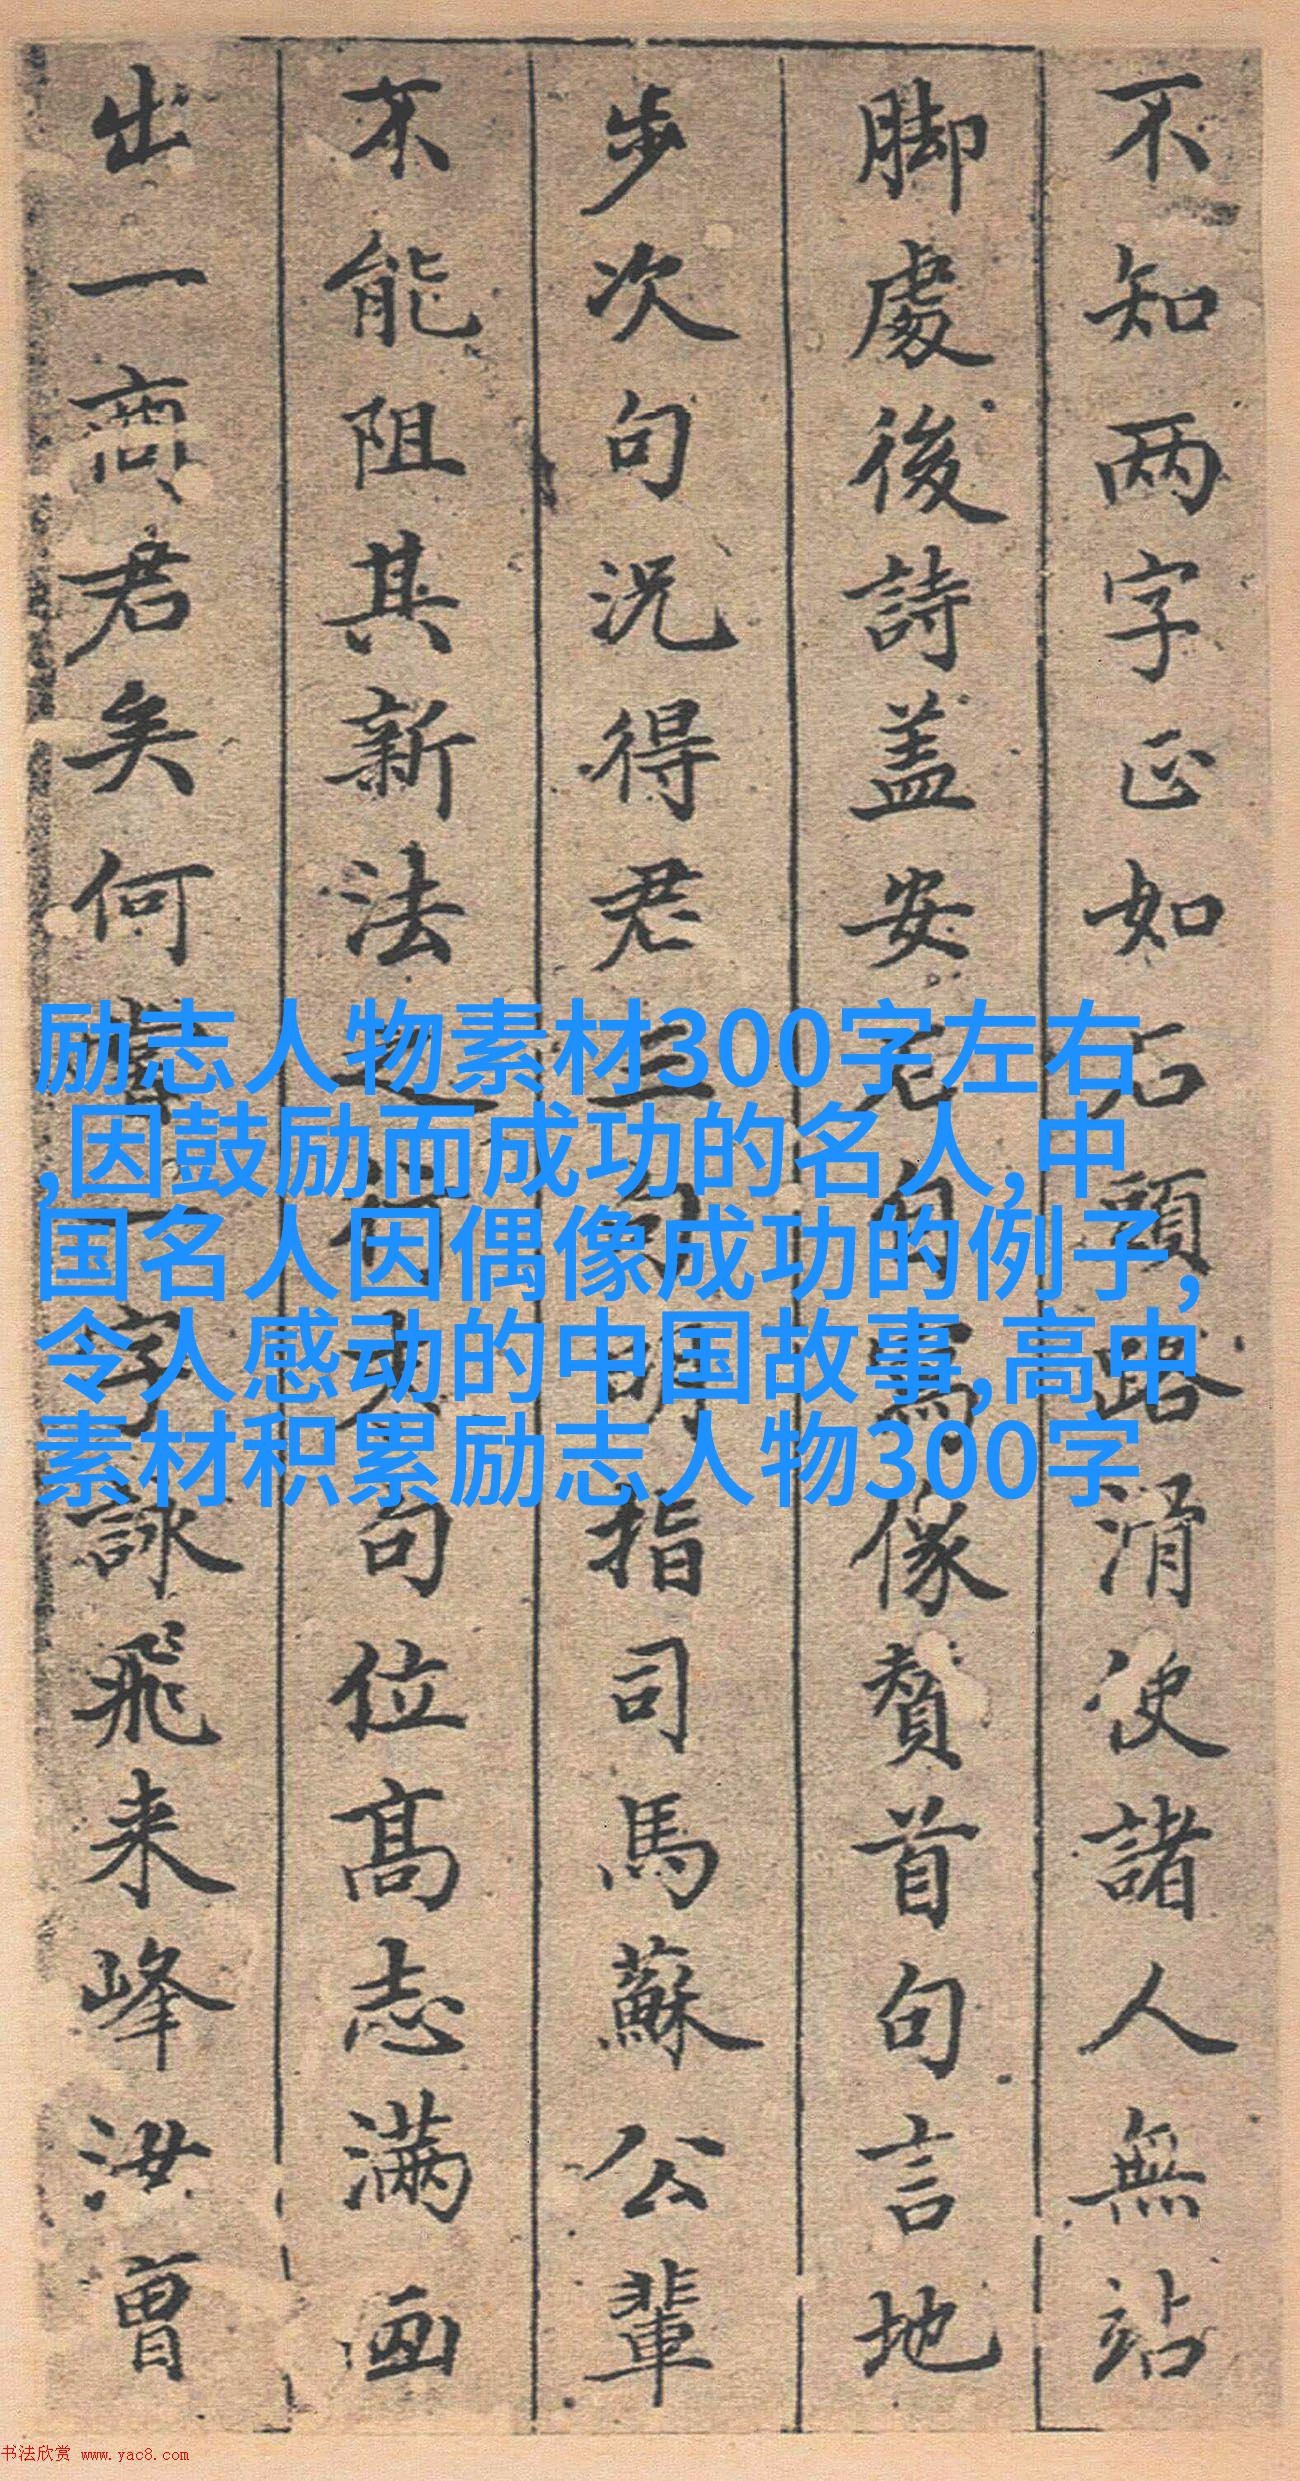 不知两字正如石頭路滑使諸人無站
脚處後詩盖安石自寫像贊首句言地
步次句况得君三句明指司馬蘇公輩
不能阻其新法之行末句位高志满画
出一商君矣何嘗一字詠飛来峰汝曾
励志人物素材300字左右
,因鼓励而成功的名人,中
国名人因偶像成功的例子,
令人感动的中国故事,高中
素材积累励志人物300字
书法欣赏 www.yac8.com